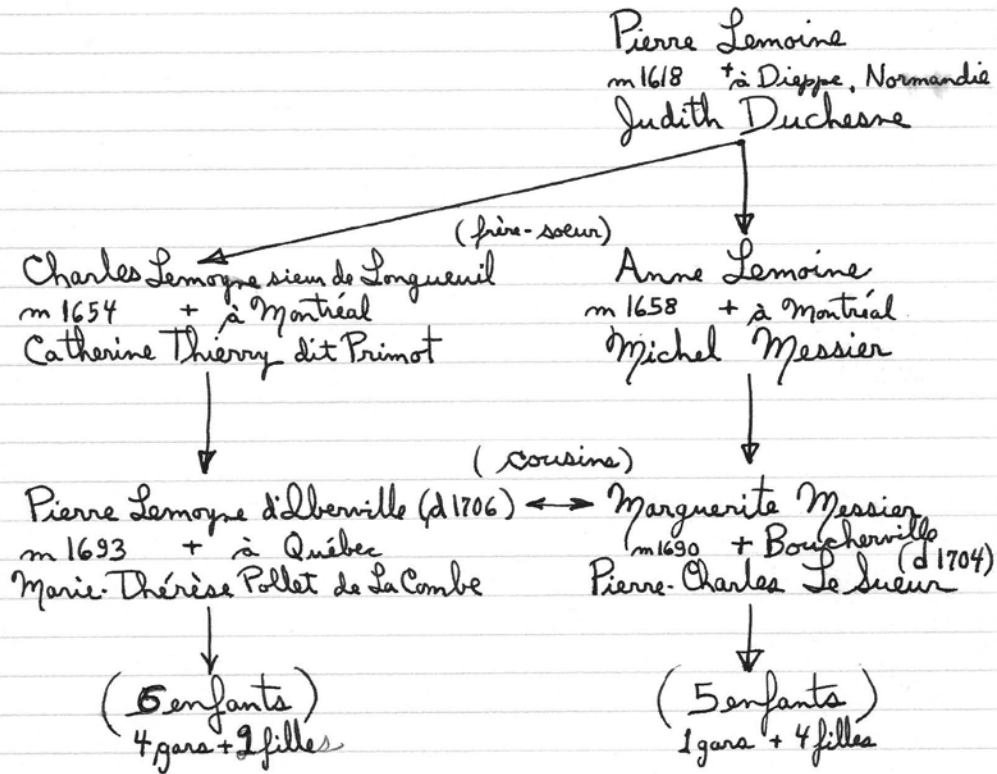 Pierre Lemoine
m 1618 + à Dieppe, Normandie
Judith Duchesne
(frère-soeur)
Charles Lemoyne sieur de Longueuil
m 1654 + à Montréal
Catherine Thierry dit Primot
Anne Lemoine
m 1658 + à Montréal
Michel Messier
(cousins)
Pierre Lemoyne d'Iberville (d 1706)
m 1693 + à Québec
Marie-Thérèse Pollet de La Combe
Marguerite Messier
m 1690 + Boucherville
Pierre-Charles Le Sueur (d 1704)
(6 enfants)
4 gars + 2 filles
(5 enfants)
1 gars + 4 filles